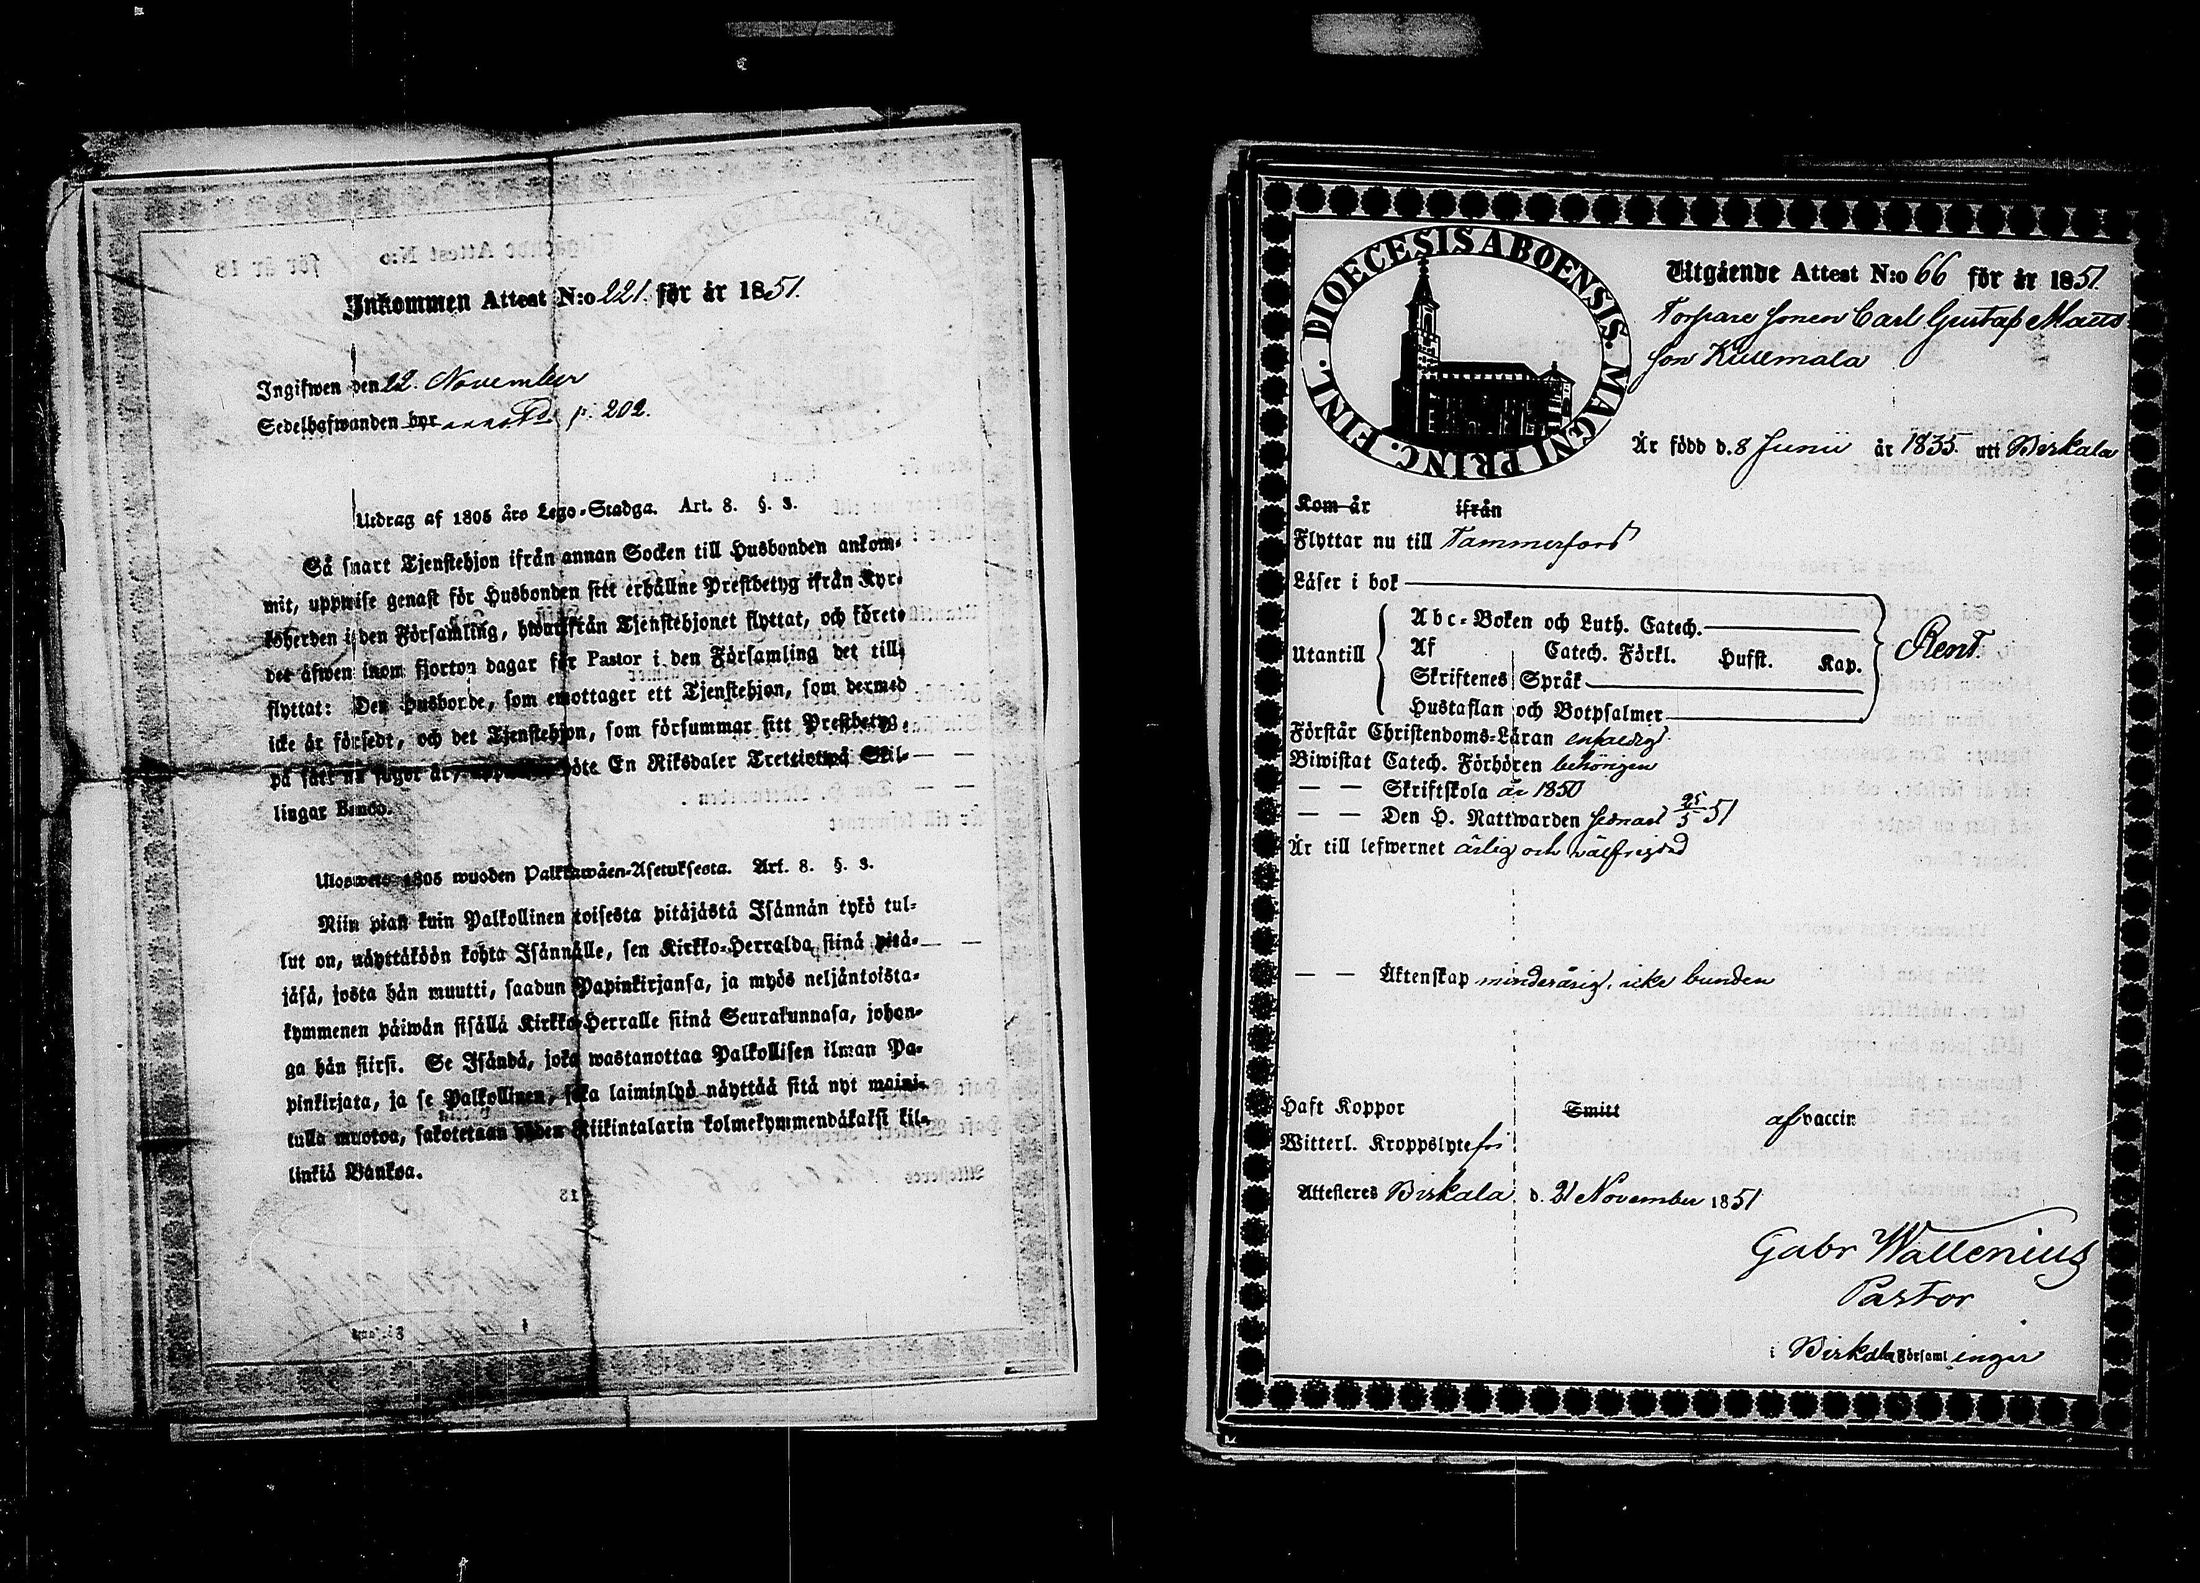 Inkommen Attest N:o 221. för år 1851.
Ingifwen den 22. November
Sedelhafwanden bor p. 202.
Utdrag af 1805 års Lego-Stadga. Art. 8. §. 3.
Så snart Tjenstehjon ifrån annan Socken till Husbonden ankom-
mit, uppwise genast för Husbonden sitt erhållne Prestbetyg ifrån Kyr-
koherden i den Församling, hwarifrån Tjenstehjonet flyttat, och förete
det äfwen inom fjorton dagar för Pastor i den Församling det till-
flyttat: Den Husbonde, som emottager ett Tjenstehjon, som dermed
icke är försedt, och det Tjenstehjon, som försummar sitt Prestbetyg,
på sätt nu sagdt är, uppwisa, böte En Riksdaler Trettiotwå Skil-
lingar Banco.
Uloswето 1805 wuoden Palkkawäen-Asetuksesta. Art. 8. §. 3.
Niin pian kuin Palkollinen toisesta pitäjästä Isännän tykö tul-
lut on, näyttäköön kohta Isännälle, sen Kirkko-Herralda siinä pitä-
jäsä, josta hän muutti, saadun Papinkirjansa, ja myös neljäntoista-
kymmenen päiwän sisällä Kirkko-Herralle siinä Seurakunnasa, johon-
ga hän siirsi. Se Isändä, joka wastanottaa Palkollisen ilman Pa-
pinkirjata, ja se Palkollinen, joka laiminlyö näyttää sitä nyt maini-
tulla muotoa, sakotetaan yhden Riikintalarin kolmekymmendäkaksi kil-
linkiä Bankoa.
DIOECESIS ABOENSIS. MAGNI PRINC. FINL.
Utgående Attest N:o 66 för år 1851.
Torpare sonen Carl Gustaf Mats
son Kullemala
Är född d. 8 Junii år 1835. uti Birkala
Kom år ifrån
Flyttar nu till Tammerfors
Läser i bok
Utantill
Abc-Boken och Luth. Catech.
Af Catech. Förkl. Husst. Kap.
Skriftenes Språk
Hustaflan och Botpsalmer
Rent.
Förstår Christendoms-Läran enfaldigt
Biwistat Catech. Förhören behörigen
— — Skriftskola år 1850
— — Den H. Nattwarden sednast 25/5 51
Är till lefwernet ärlig och välfrejdad
— — Äktenskap minderårig, icke bunden
Haft Koppor Smitt af vaccin
Witterl. Kroppslyte fri
Attesteres Birkala d. 21 November 1851
Gabr Wallenius
Pastor
i Birkala Församlingar